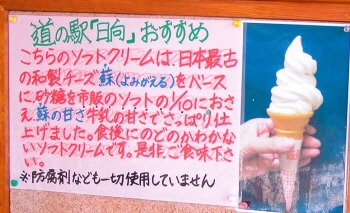 道の駅「日向」おすすめ
こちらのソフトクリームは、日本最古
の和製チーズ蘇(よみがえる)をベース
に、砂糖を市販のソフトの1/10におさ
え、蘇の甘さ牛乳の甘さでさっぱり仕
上げました。食後にのどのかわかな
いソフトクリームです。是非、ご食味下さ
い。
※防腐剤なども一切使用していません